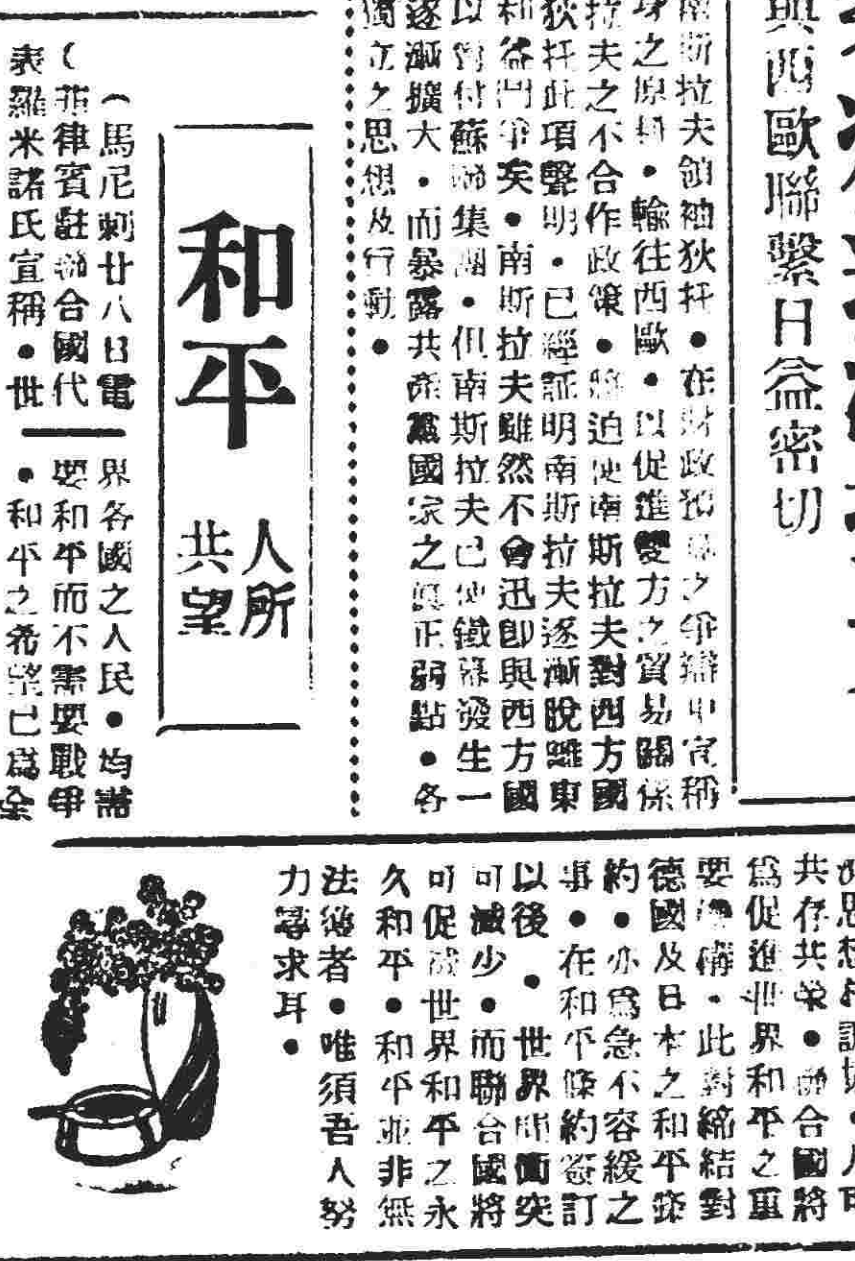 與西歐聯繫日益密切
南斯拉夫領袖狄托●在財政預算之爭辯中宣稱
身之原料●輸往西歐●以促進雙方之貿易關係
拉夫之不合作政策●將迫使南斯拉夫對西方國
狄托此項聲明●已經証明南斯拉夫逐漸脫離東
和益鬥爭矣●南斯拉夫雖然不會迅卽與西方國
以對付蘇聯集團●但南斯拉夫已使鐵幕發生一
逐漸擴大●而暴露共產黨國家之眞正弱點●各
獨立之思想及行動●
和平
人所
共望
(馬尼剌廿八日電
(菲律賓駐聯合國代
表羅米諾氏宣稱●世
界各國之人民●均需
要和平而不需要戰爭
●和平之希望已爲全
共存共榮●聯合國將
爲促進世界和平之重
要機構●此對締結對
德國及日本之和平條
約●亦爲急不容緩之
事●在和平條約簽訂
以後●世界所衝突
可減少●而聯合國將
可促成世界和平之永
久和平●和平並非無
法獲者●唯須吾人努
力尋求耳●